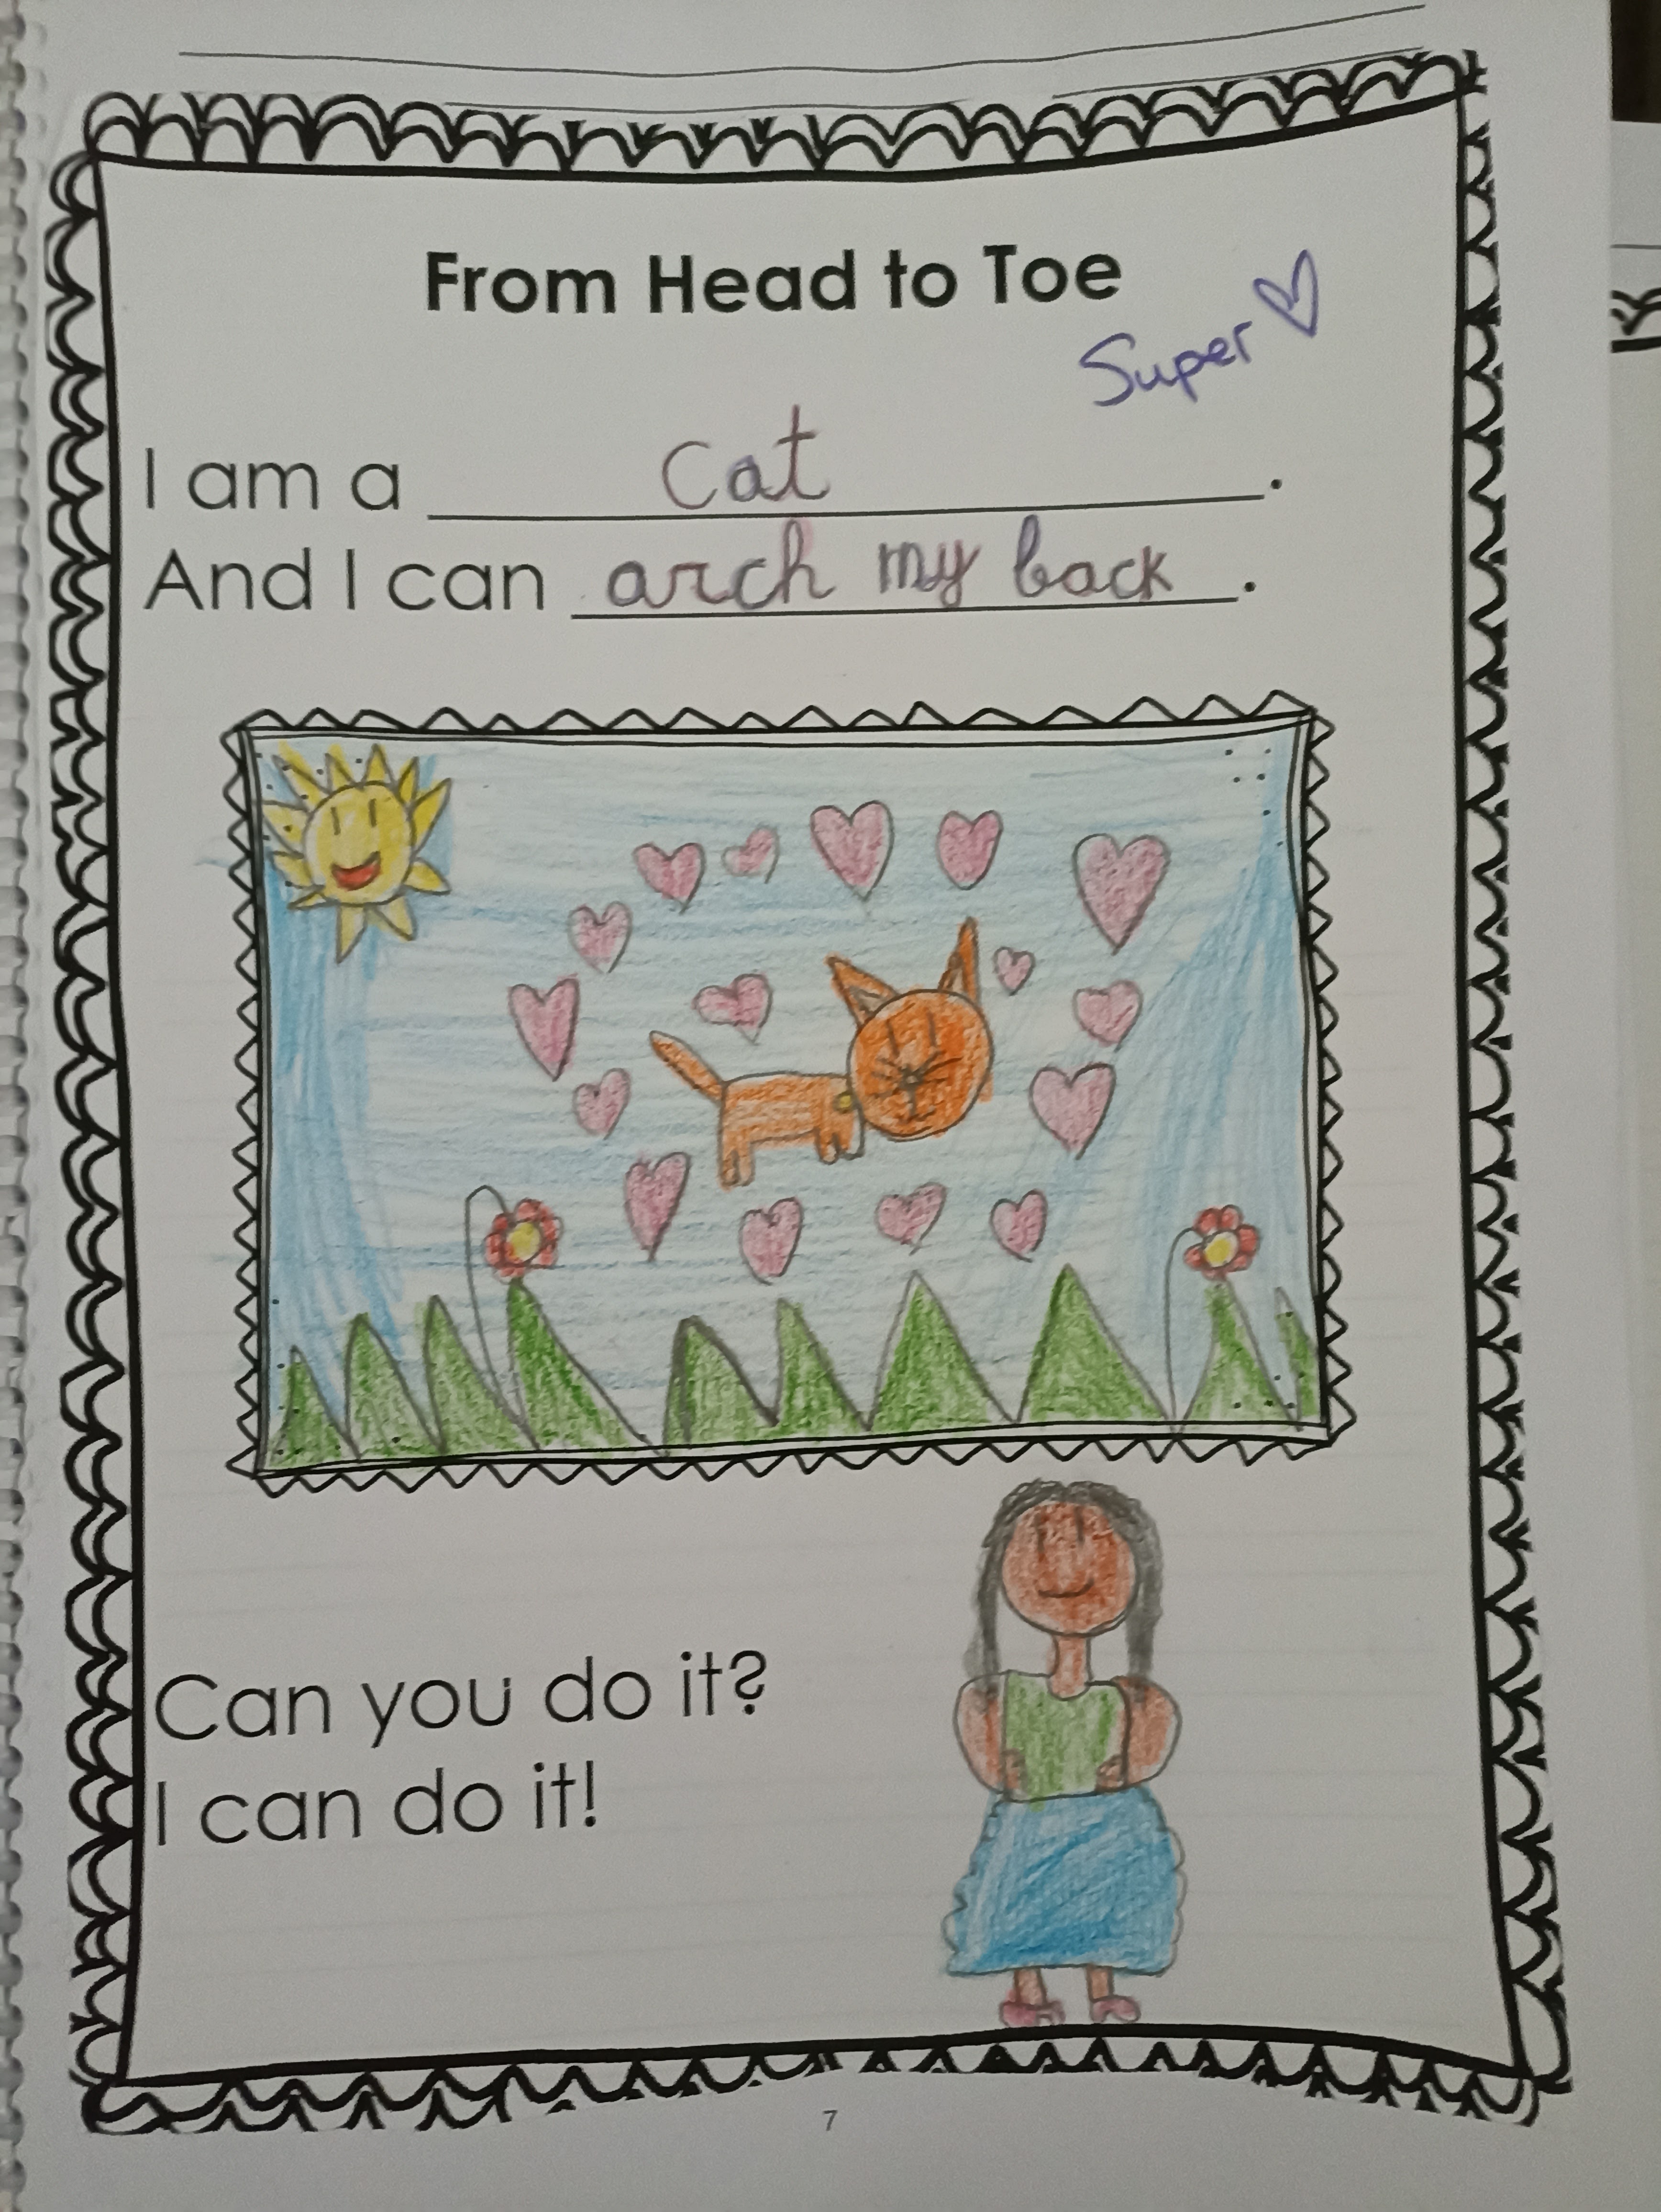 From Head to Toe
Super ♡
I am a cat.
And I can arch my back.
Can you do it?
I can do it!
7